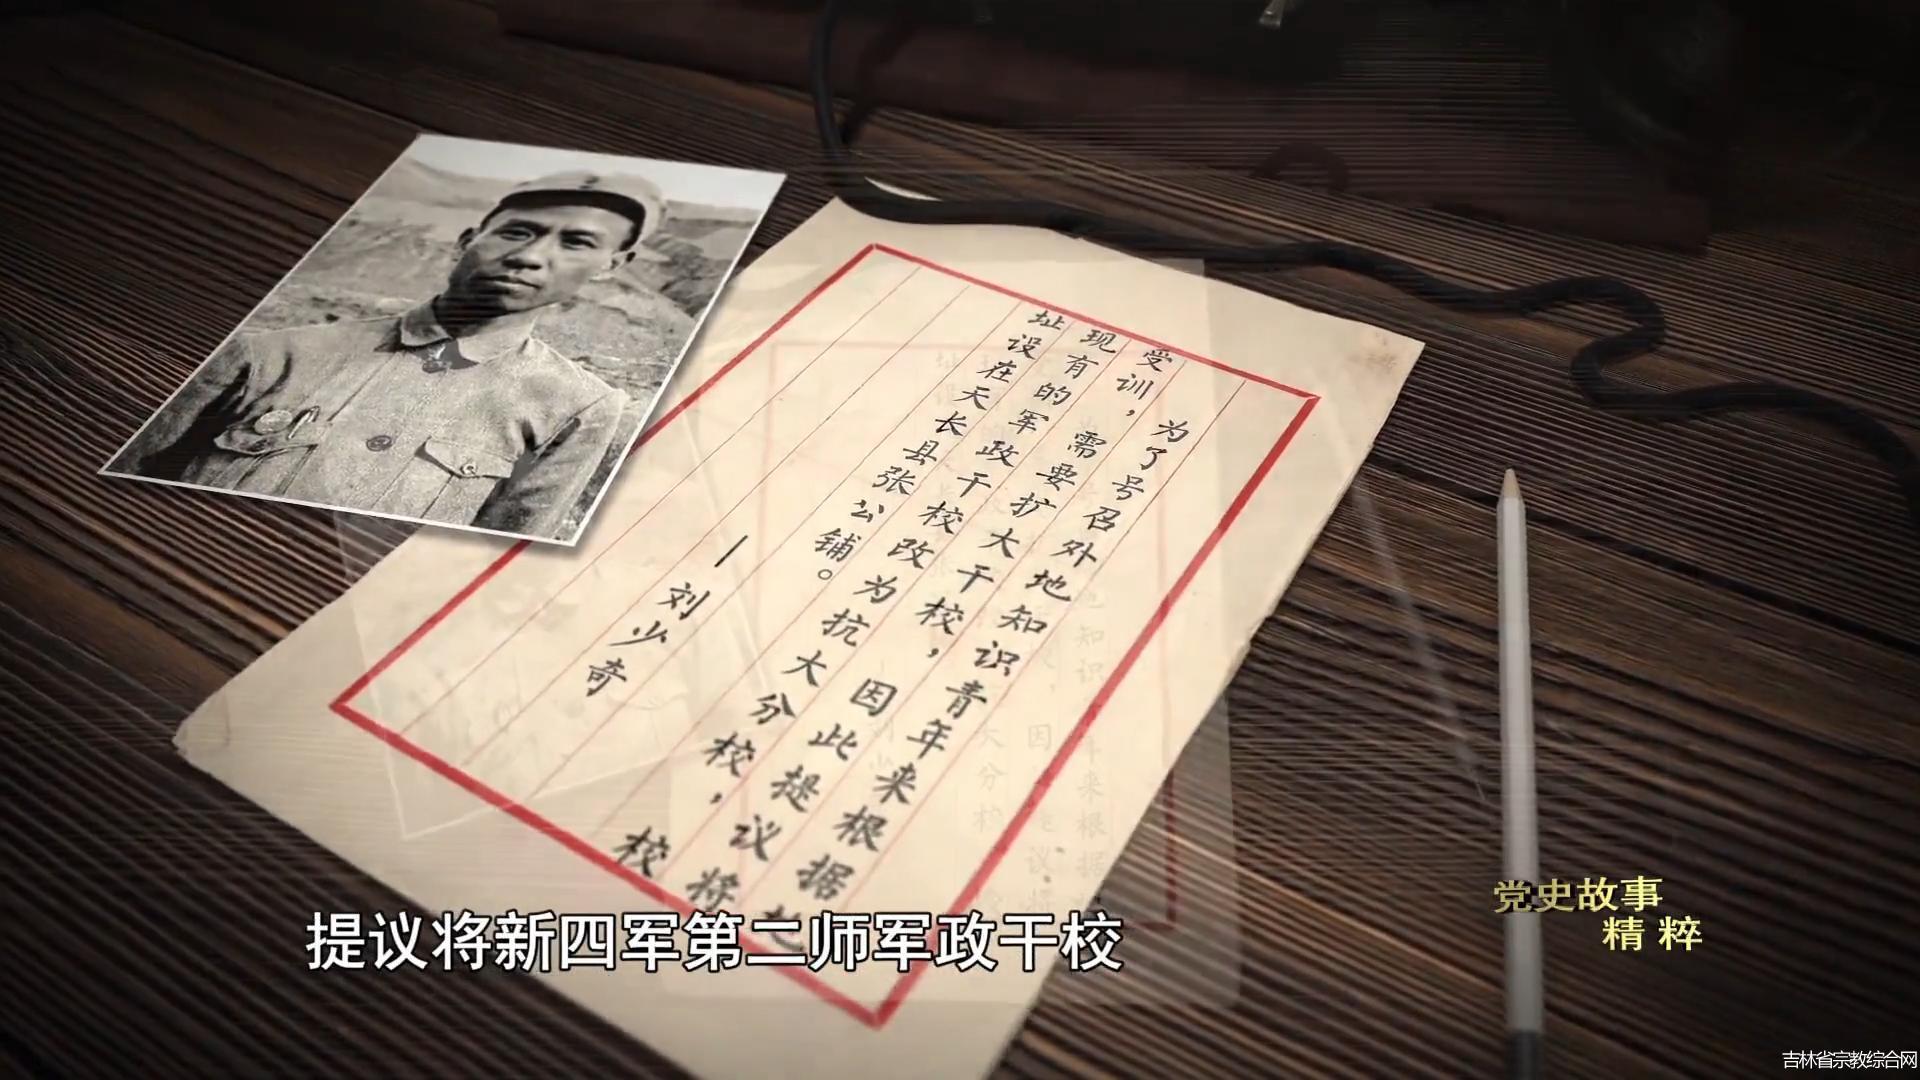 为了号召外地知识青年来根据地
受训，需要扩大干校，因此提议将
现有的军政干校改为抗大分校，校
址设在天长县张公铺。
—刘少奇
提议将新四军第二师军政干校
党史故事
精粹
吉林省宗教综合网